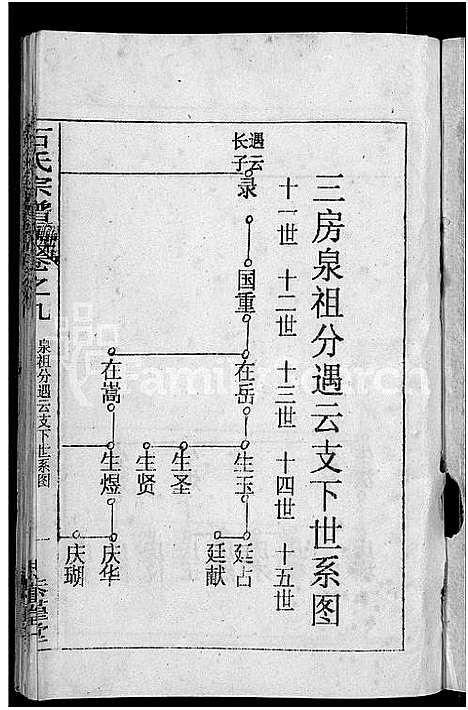 三房泉祖分遇云支下世系图
十一世 十二世 十三世 十四世 十五世
遇云
长子
录
国重
在岳
在嵩
生玉
生圣
生贤
生煜
廷占
廷献
庆华
庆瑚
石氏宗谱 卷之九
泉祖分遇云支下世系图
一